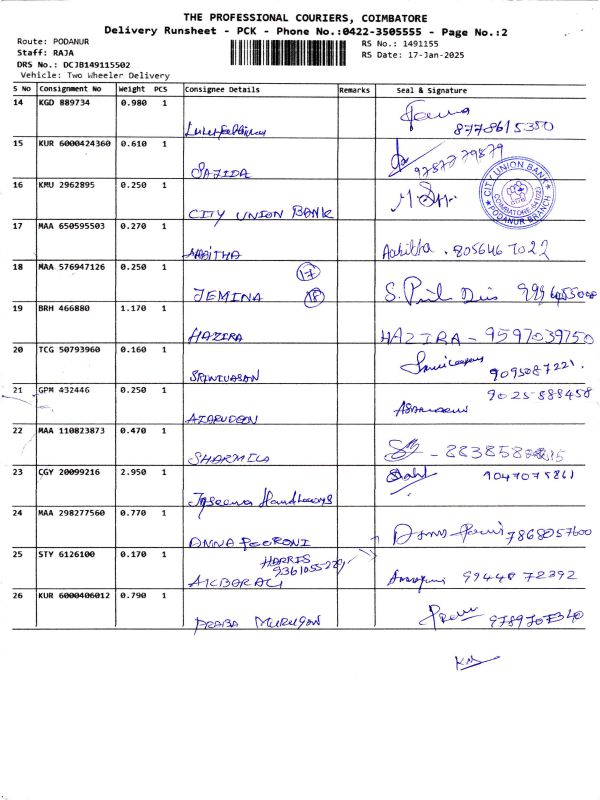 THE PROFESSIONAL COURIERS, COIMBATORE
Delivery Runsheet - PCK - Phone No.:0422-3505555 - Page No.:2
Route: PODANUR
Staff: RAJA
DRS No.: DCJB149115502
Vehicle: Two Wheeler Delivery
RS No.: 1491155
RS Date: 17-Jan-2025
S No Consignment No Weight PCS Consignee Details Remarks Seal & Signature
14 KGD 889734 0.980 1
8778615350
15 KUR 6000424360 0.610 1
SAJIDA 9787779879
16 KMU 2962895 0.250 1
CITY UNION BANK
CITY UNION BANK
COIMBATORE-641023
PODANUR BRANCH
17 MAA 650595503 0.270 1
HABITHA 8056467022
18 MAA 576947126 0.250 1 17
JEMINA 18
19 BRH 466880 1.170 1
HAZIRA HAZIRA - 9597039750
20 TCG 50793960 0.160 1
SRINIVASAN 9095087221
21 GPM 432446 0.250 1 9025888458
AZARUDEEN
22 MAA 110823873 0.470 1
SHARMILA
23 CGY 20099216 2.950 1
Jaseena Handlooms
24 MAA 298277560 0.770 1
ANNA POORONI 7868057600
25 STY 6126100 0.170 1 HARRIS
AKBARALI
26 KUR 6000406012 0.790 1
PRABA MURUGAN